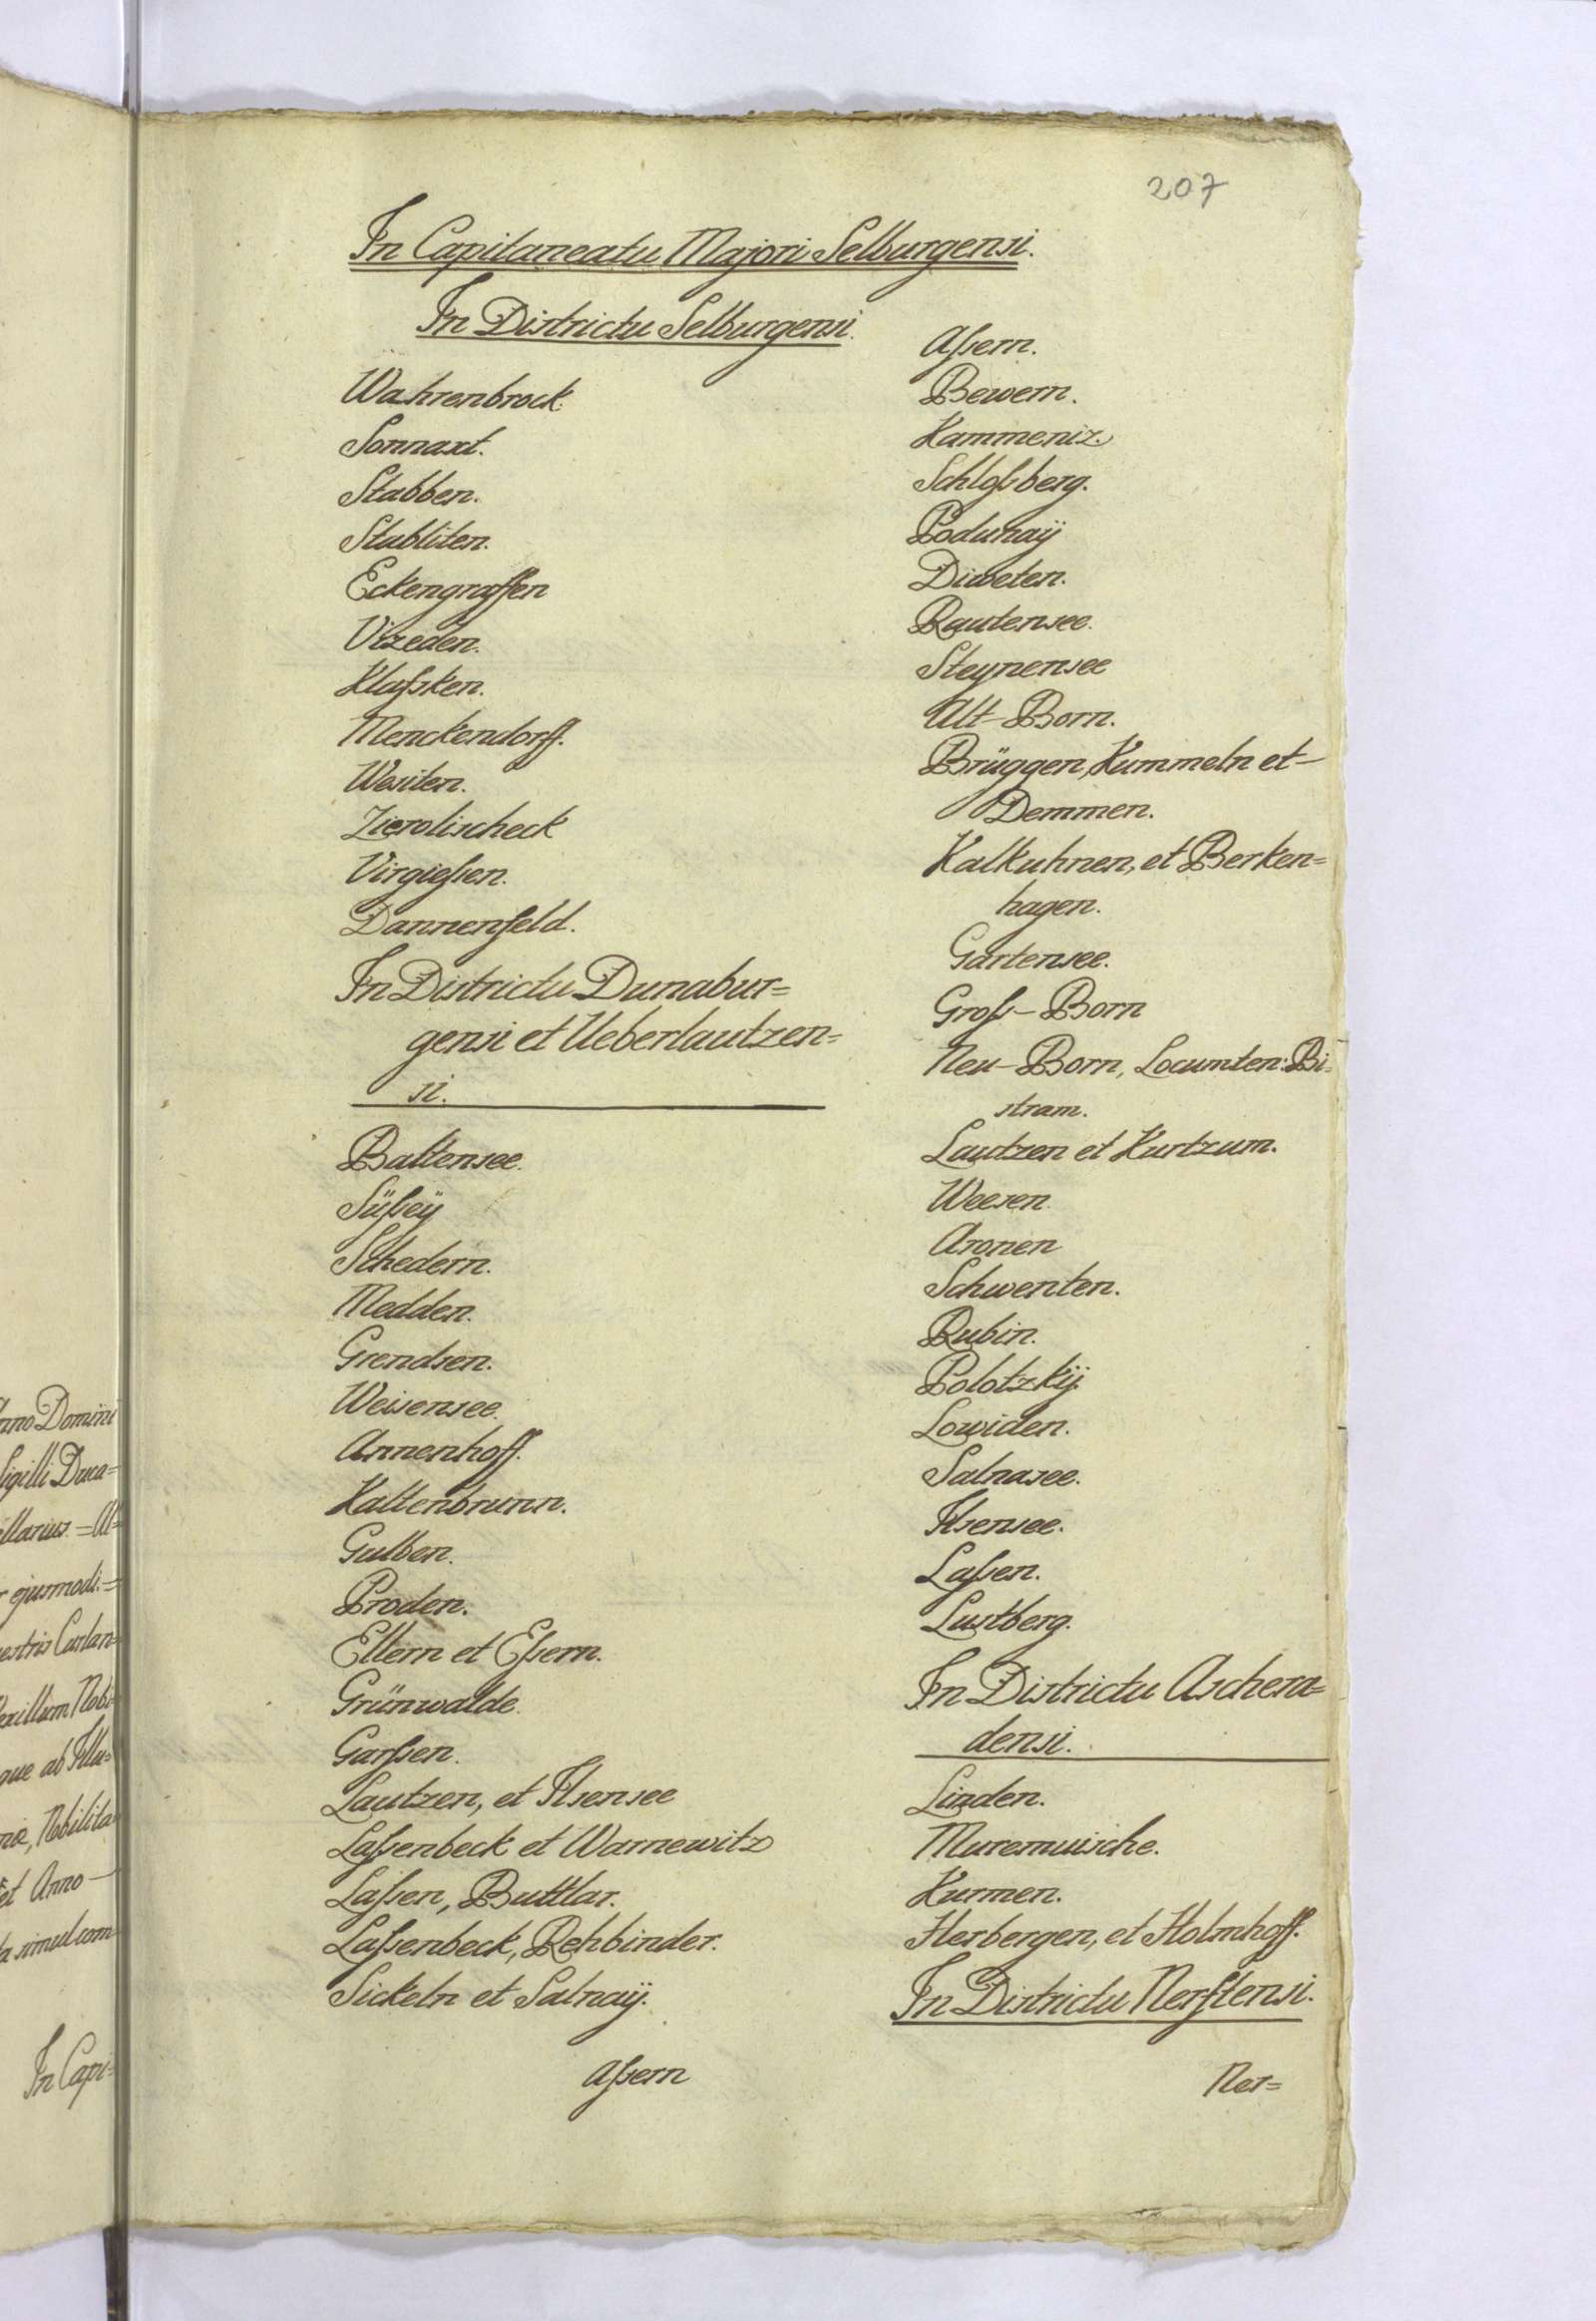 207
In Capitaneatu Majori Selburgensi.
In Districtu Selburgensi.
Wahrenbrock.
Sonnaxt.
Stabben.
Stubliten.
Eckengraffen
Vizeden.
Klaſsken.
Menckendorff.
Wesiten.
Zierolischeck
Virgieſsen.
Dannenfeld.
In Districtu Dunabur=
gensi et Ueberlautzen=
si.
Baltensee.
Süſseÿ
Schedern.
Medden.
Grendsen.
Weisensee.
Annenhoff.
Kaltenbrunn.
Gulben.
Proden.
Ellern et Eſsern.
Grünwalde.
Garſsen.
Lautzen, et Ilsensee
Laſsenbeck et Warnewitz
Laſsen, Buttlar.
Laſsenbeck, Rehbinder.
Sickeln et Salnaÿ.
Aſsern
Aſsern.
Bewern.
Kammeniz.
Schloſsberg.
Podunaÿ
Diweten.
Rautensee.
Steynensee
Alt-Born.
Brüggen, Kummeln et
Demmen.
Kalkuhnen, et Berken=
hagen.
Gartensee.
Groſs-Born
Neu-Born, Locumten: Bi=
stram.
Lautzen et Kurtzum.
Weesen
Aronen
Schwenten.
Rubin.
Polotzkÿ.
Lowiden.
Salnasee.
Ilsensee.
Laſsen.
Lustberg.
In Districtu Aschera=
densi.
Linden.
Muremuische.
Kurmen.
Herbergen, et Holmhoff.
In Districtu Nerftensi.
Ner=
nno Domini
Sigilli Duca=
llarius = Al=
ejusmodi =
estris Curlan=
exillum Nobi=
que ab Illu=
Nobilita
et Anno
simul com
In Capi=